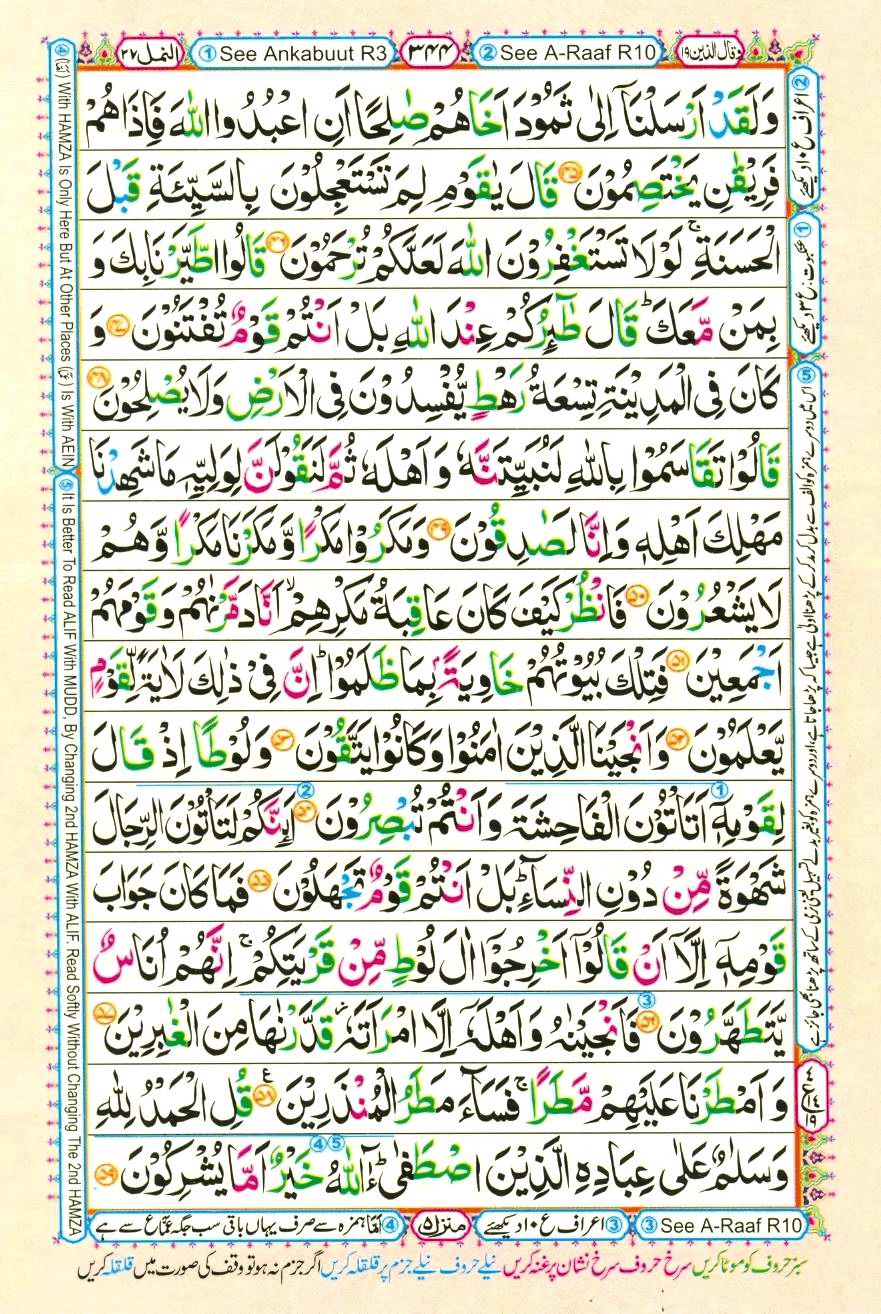 وقال الذين ١٩
② See A-Raaf R10
٣٤٤
① See Ankabuut R3
النمل ٢٧
وَلَقَدْ اَرْسَلْنَاۤ اِلٰى ثَمُوْدَ اَخَاهُمْ صٰلِحًا اَنِ اعْبُدُوا اللّٰهَ فَاِذَا هُمْ
فَرِيْقٰنِ يَخْتَصِمُوْنَ ﴿۴۵﴾ قَالَ يٰقَوْمِ لِمَ تَسْتَعْجِلُوْنَ بِالسَّيِّئَةِ قَبْلَ
الْحَسَنَةِ ۚ لَوْلَا تَسْتَغْفِرُوْنَ اللّٰهَ لَعَلَّكُمْ تُرْحَمُوْنَ ﴿۴۶﴾ قَالُوا اطَّيَّرْنَا بِكَ وَ
بِمَنْ مَّعَكَ ؕ قَالَ طٰٓئِرُكُمْ عِنْدَ اللّٰهِ بَلْ اَنْتُمْ قَوْمٌ تُفْتَنُوْنَ ﴿۴۷﴾ وَ
كَانَ فِى الْمَدِيْنَةِ تِسْعَةُ رَهْطٍ يُّفْسِدُوْنَ فِى الْاَرْضِ وَلَا يُصْلِحُوْنَ ﴿۴۸﴾
قَالُوْا تَقَاسَمُوْا بِاللّٰهِ لَنُبَيِّتَنَّهٗ وَاَهْلَهٗ ثُمَّ لَنَقُوْلَنَّ لِوَلِيِّهٖ مَا شَهِدْنَا
مَهْلِكَ اَهْلِهٖ وَاِنَّا لَصٰدِقُوْنَ ﴿۴۹﴾ وَمَكَرُوْا مَكْرًا وَّمَكَرْنَا مَكْرًا وَّهُمْ
لَا يَشْعُرُوْنَ ﴿۵۰﴾ فَانْظُرْ كَيْفَ كَانَ عَاقِبَةُ مَكْرِهِمْ ۙ اَنَّا دَمَّرْنٰهُمْ وَقَوْمَهُمْ
اَجْمَعِيْنَ ﴿۵۱﴾ فَتِلْكَ بُيُوْتُهُمْ خَاوِيَةًۢ بِمَا ظَلَمُوْا ؕ اِنَّ فِىْ ذٰلِكَ لَاٰيَةً لِّقَوْمٍ
يَّعْلَمُوْنَ ﴿۵۲﴾ وَاَنْجَيْنَا الَّذِيْنَ اٰمَنُوْا وَكَانُوْا يَتَّقُوْنَ ﴿۵۳﴾ وَلُوْطًا اِذْ قَالَ
لِقَوْمِهٖۤ اَتَاْتُوْنَ الْفَاحِشَةَ وَاَنْتُمْ تُبْصِرُوْنَ ﴿۵۴﴾ اَئِنَّكُمْ لَتَاْتُوْنَ الرِّجَالَ
شَهْوَةً مِّنْ دُوْنِ النِّسَآءِ ؕ بَلْ اَنْتُمْ قَوْمٌ تَجْهَلُوْنَ ﴿۵۵﴾ فَمَا كَانَ جَوَابَ
قَوْمِهٖۤ اِلَّاۤ اَنْ قَالُوْۤا اَخْرِجُوْۤا اٰلَ لُوْطٍ مِّنْ قَرْيَتِكُمْ ۚ اِنَّهُمْ اُنَاسٌ
يَّتَطَهَّرُوْنَ ﴿۵۶﴾ فَاَنْجَيْنٰهُ وَاَهْلَهٗۤ اِلَّا امْرَاَتَهٗ ؗ قَدَّرْنٰهَا مِنَ الْغٰبِرِيْنَ ﴿۵۷﴾
وَاَمْطَرْنَا عَلَيْهِمْ مَّطَرًا ۚ فَسَآءَ مَطَرُ الْمُنْذَرِيْنَ ﴿۵۸﴾ قُلِ الْحَمْدُ لِلّٰهِ
وَسَلٰمٌ عَلٰى عِبَادِهِ الَّذِيْنَ اصْطَفٰى ؕ ءٰٓاللّٰهُ خَيْرٌ اَمَّا يُشْرِكُوْنَ ﴿۵۹﴾
② اعراف ع ۱۰ دیکھئے
① عنکبوت: ع ۳ دیکھئے
④ (اَمَّا) With HAMZA Is Only Here But At Other Places (عَمَّا) Is With AEIN
⑤ It Is Better To Read ALIF With MUDD, By Changing 2nd HAMZA With ALIF. Read Softly Without Changing The 2nd HAMZA
③ See A-Raaf R10
③ اعراف ع ۱۰ دیکھئے
منزل ۵
④ اَمَّا ہمزہ سے صرف یہاں باقی سب جگہ عَمَّا ع سے ہے
سبز حروف کو موٹا کریں سرخ حروف سرخ نشان پر غنہ کریں نیلے حروف نیلے جزم پر قلقلہ کریں اگر جزم نہ ہو تو وقف کی صورت میں قلقلہ کریں